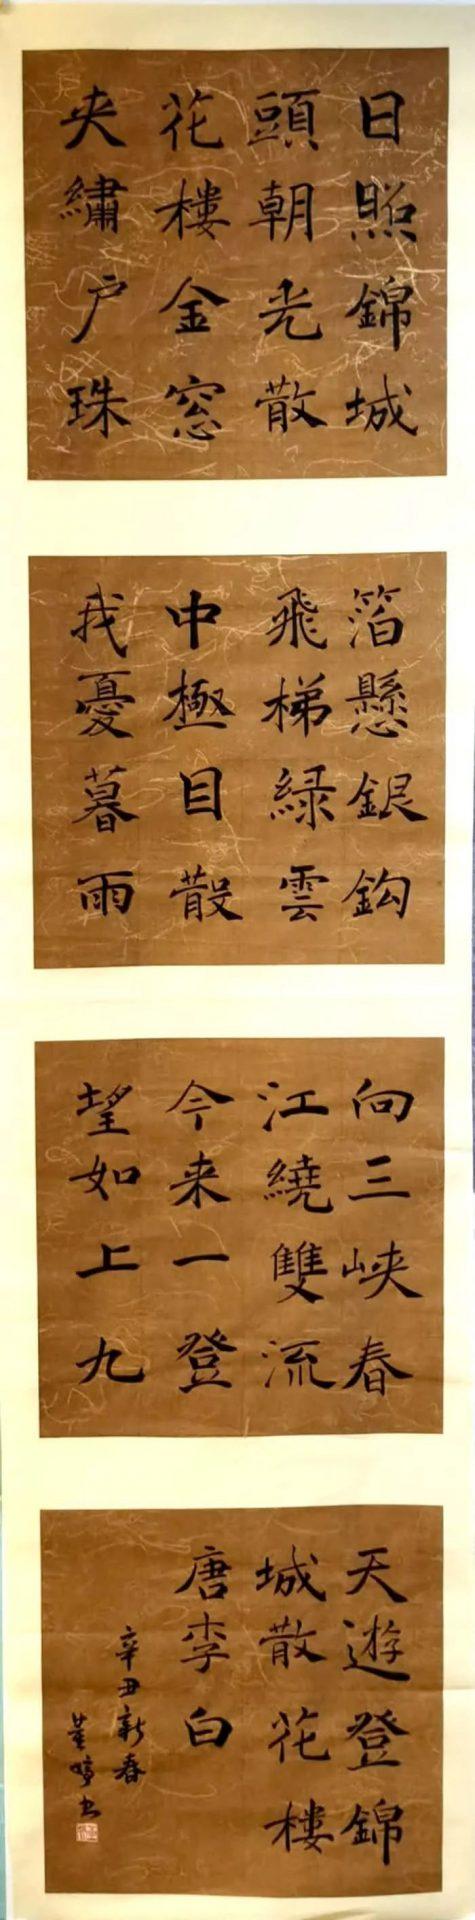 日照錦城
頭朝光散
花樓金窓
夾繡户珠
箔懸銀鈎
飛梯緑雲
中極目散
我憂暮雨
向三峽春
江繞雙流
今来一登
望如上九
天遊登錦
城散花樓
唐李白
辛丑新春
董婷书